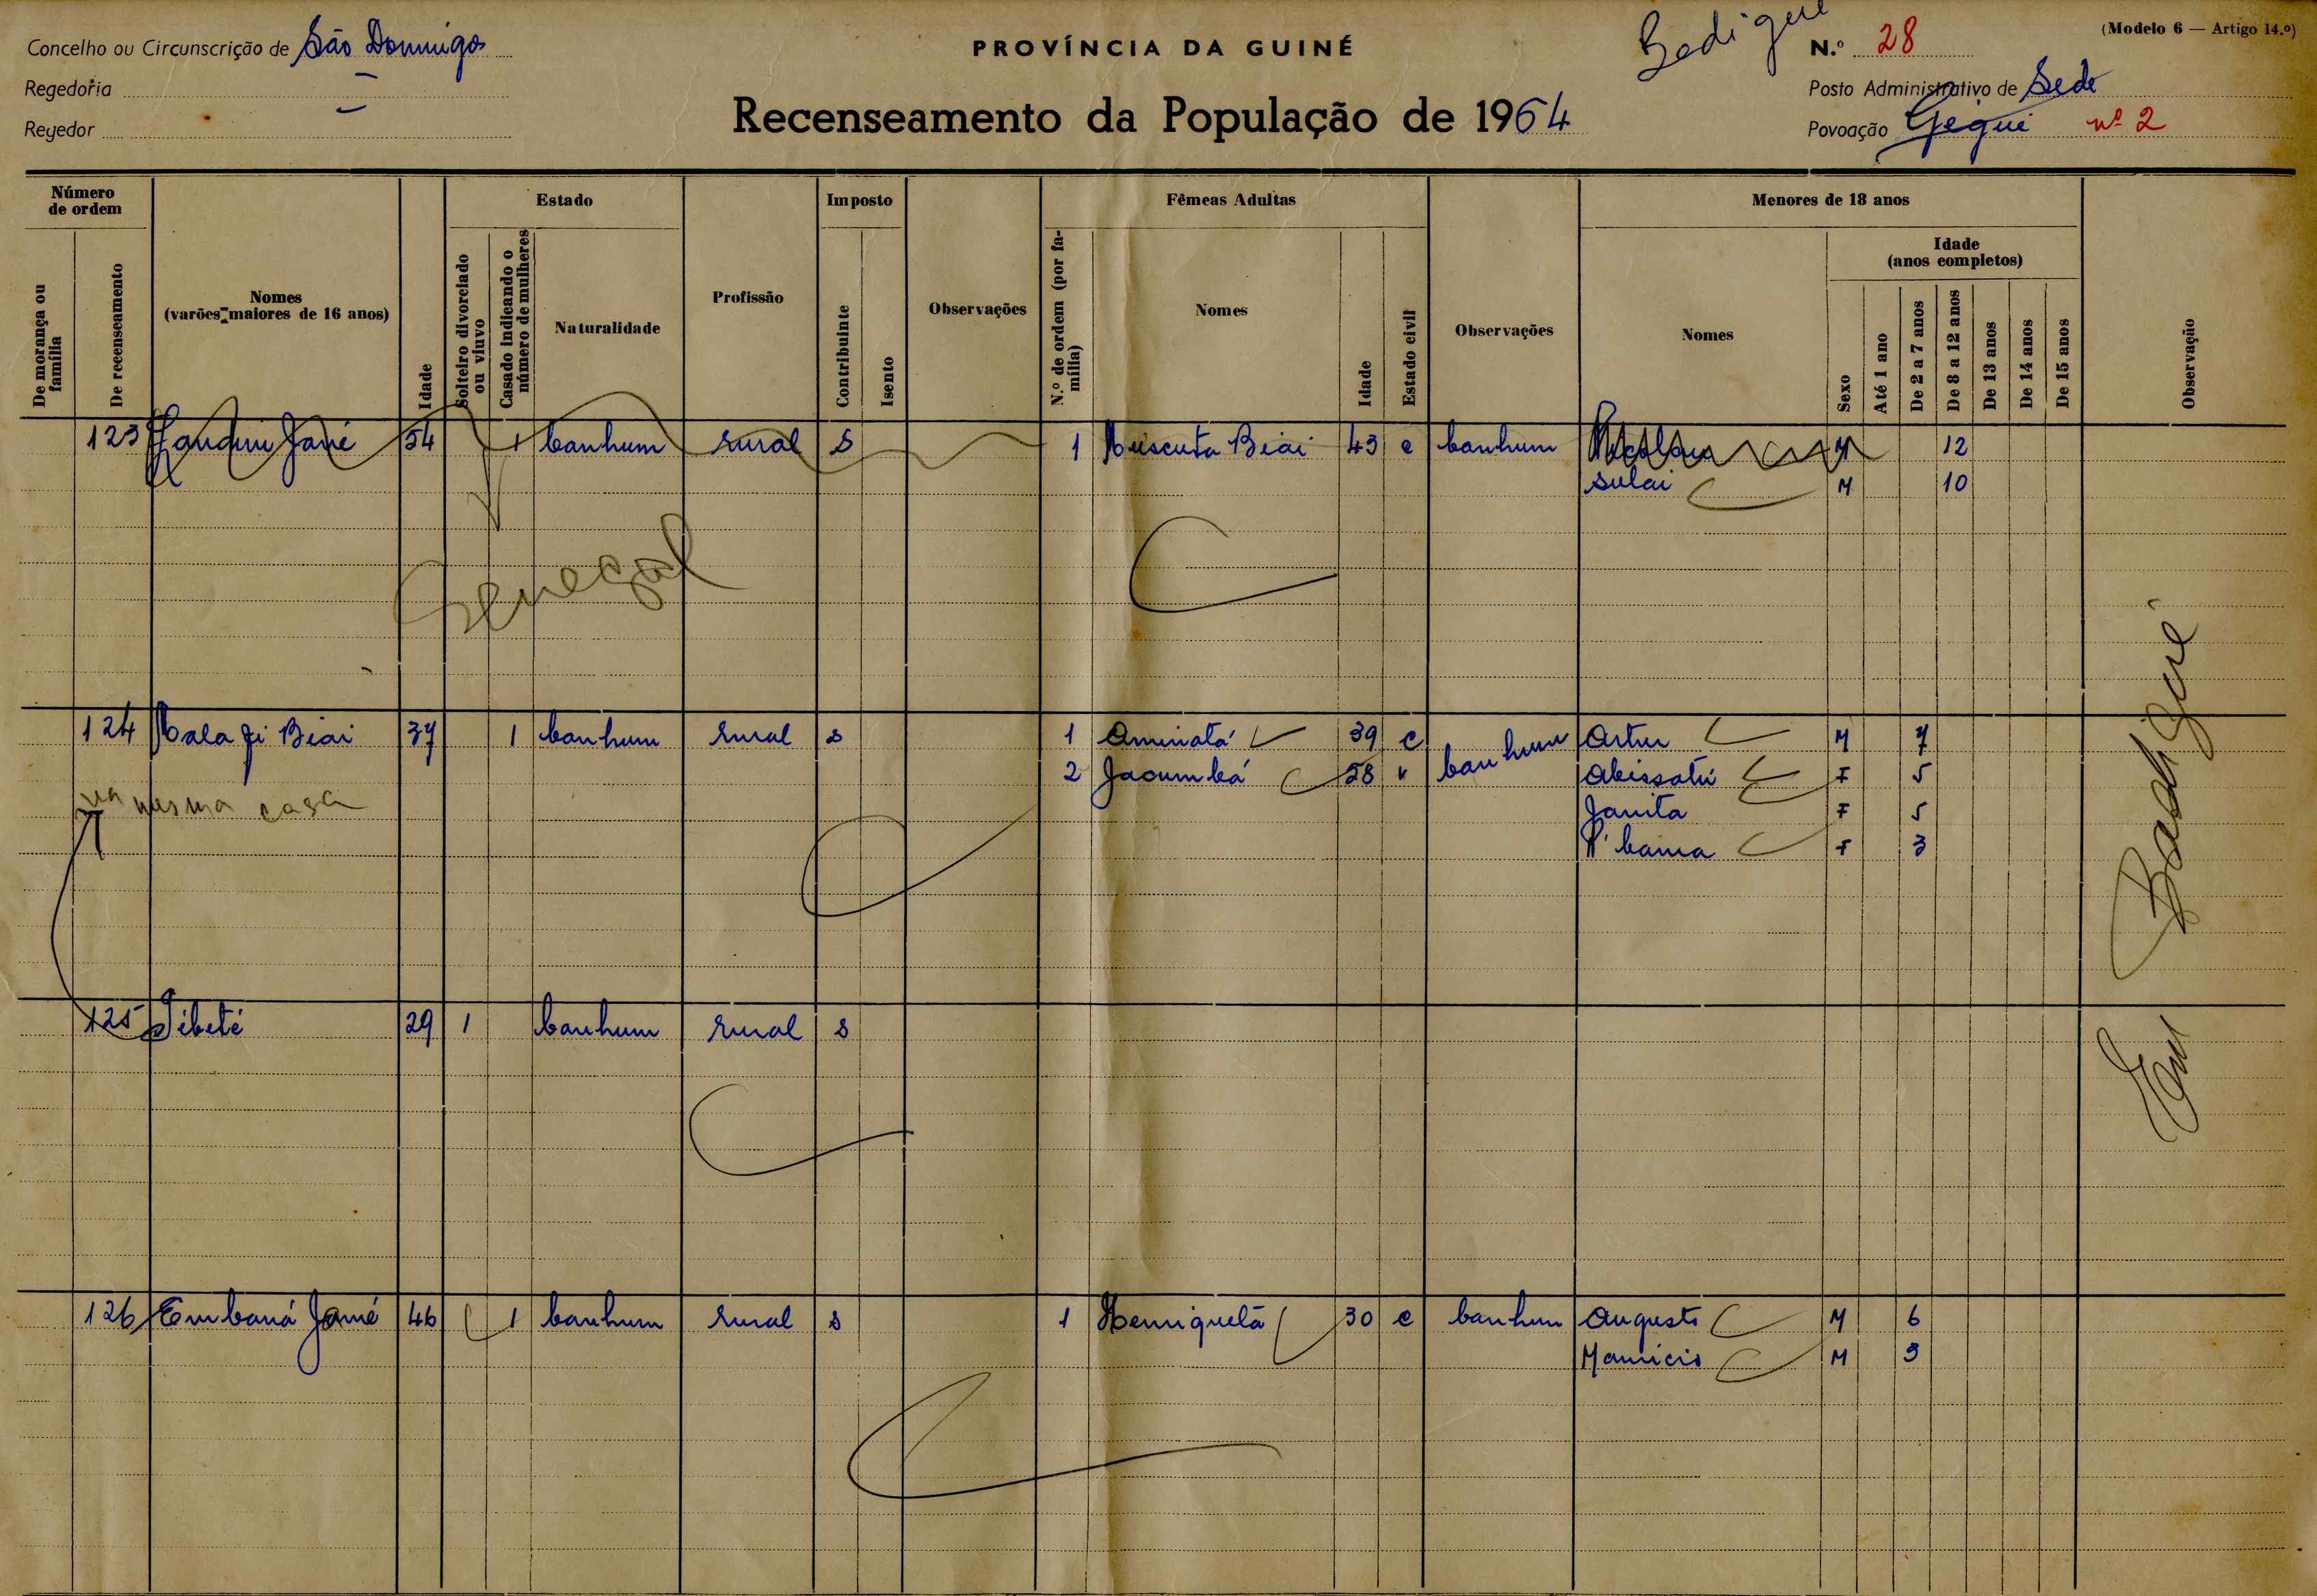 Badigué
(Modelo 6 — Artigo 14.º)
Concelho ou Circunscrição de São Domingos
PROVÍNCIA DA GUINÉ
N.º 28
Regedoria —
Posto Administrativo de Sede
Regedor —
Recenseamento da População de 1964
Povoação Gegui nº 2
Número de ordem
Estado
Imposto
Fêmeas Adultas
Menores de 18 anos
De morança ou família
De recenseamento
Nomes (varões maiores de 16 anos)
Idade
Solteiro divorciado ou viuvo
Casado indicando o número de mulheres
Naturalidade
Profissão
Contribuinte
Isento
Observações
N.º de ordem (por família)
Nomes
Idade
Estado civil
Observações
Nomes
Sexo
Idade (anos completos)
Até 1 ano
De 2 a 7 anos
De 8 a 12 anos
De 13 anos
De 14 anos
De 15 anos
Observação
123 Jané 54 1 banhum rural s 1 Biai 43 c banhum M 12
Sulai M 10
Senegal
124 Biai 37 1 banhum rural s 1 Aminatá 39 c banhum Artur M 7
2 Jacumbá 58 v Abissatú F 5
na mesma casa Janita F 5
F 3
Badigué
125 29 1 banhum rural s
Em
126 Embaná Jamé 46 1 banhum rural s 1 Henriquetá 30 c banhum Augusto M 6
Mauricio M 3